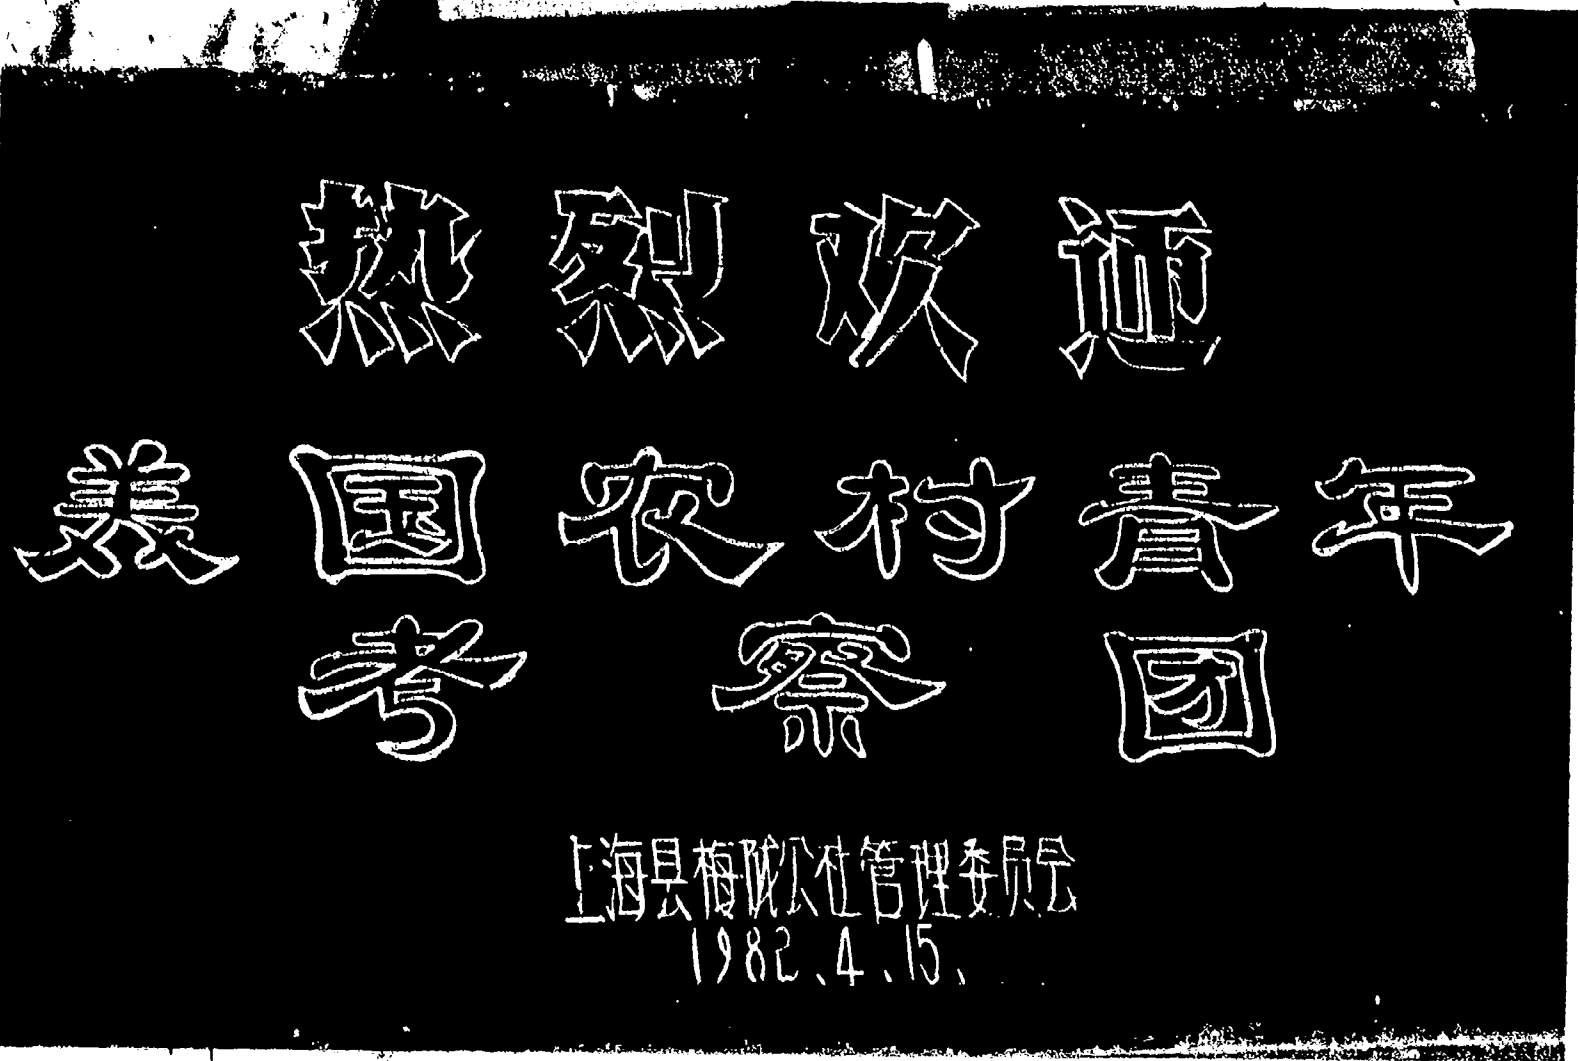 热烈欢迎
美国农村青年
考察团
上海县梅陇公社管理委员会
1982.4.15.